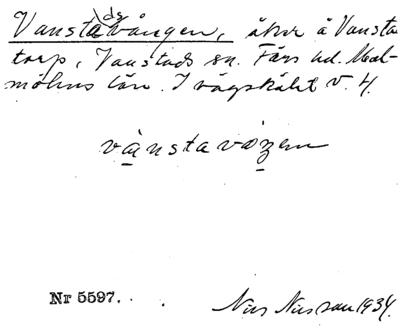 Vanstadsvången, åker å Vansta
torp, Vanstads sn. Färs hd. Mal-
möhus län. I vägskält v. 4.
vånsta vången
Nr 5597.
Nils Nilsson 1934.